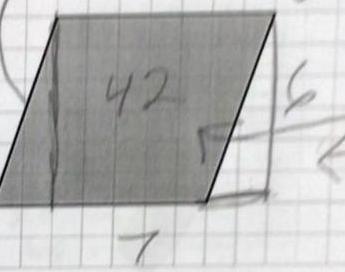 42
6
7